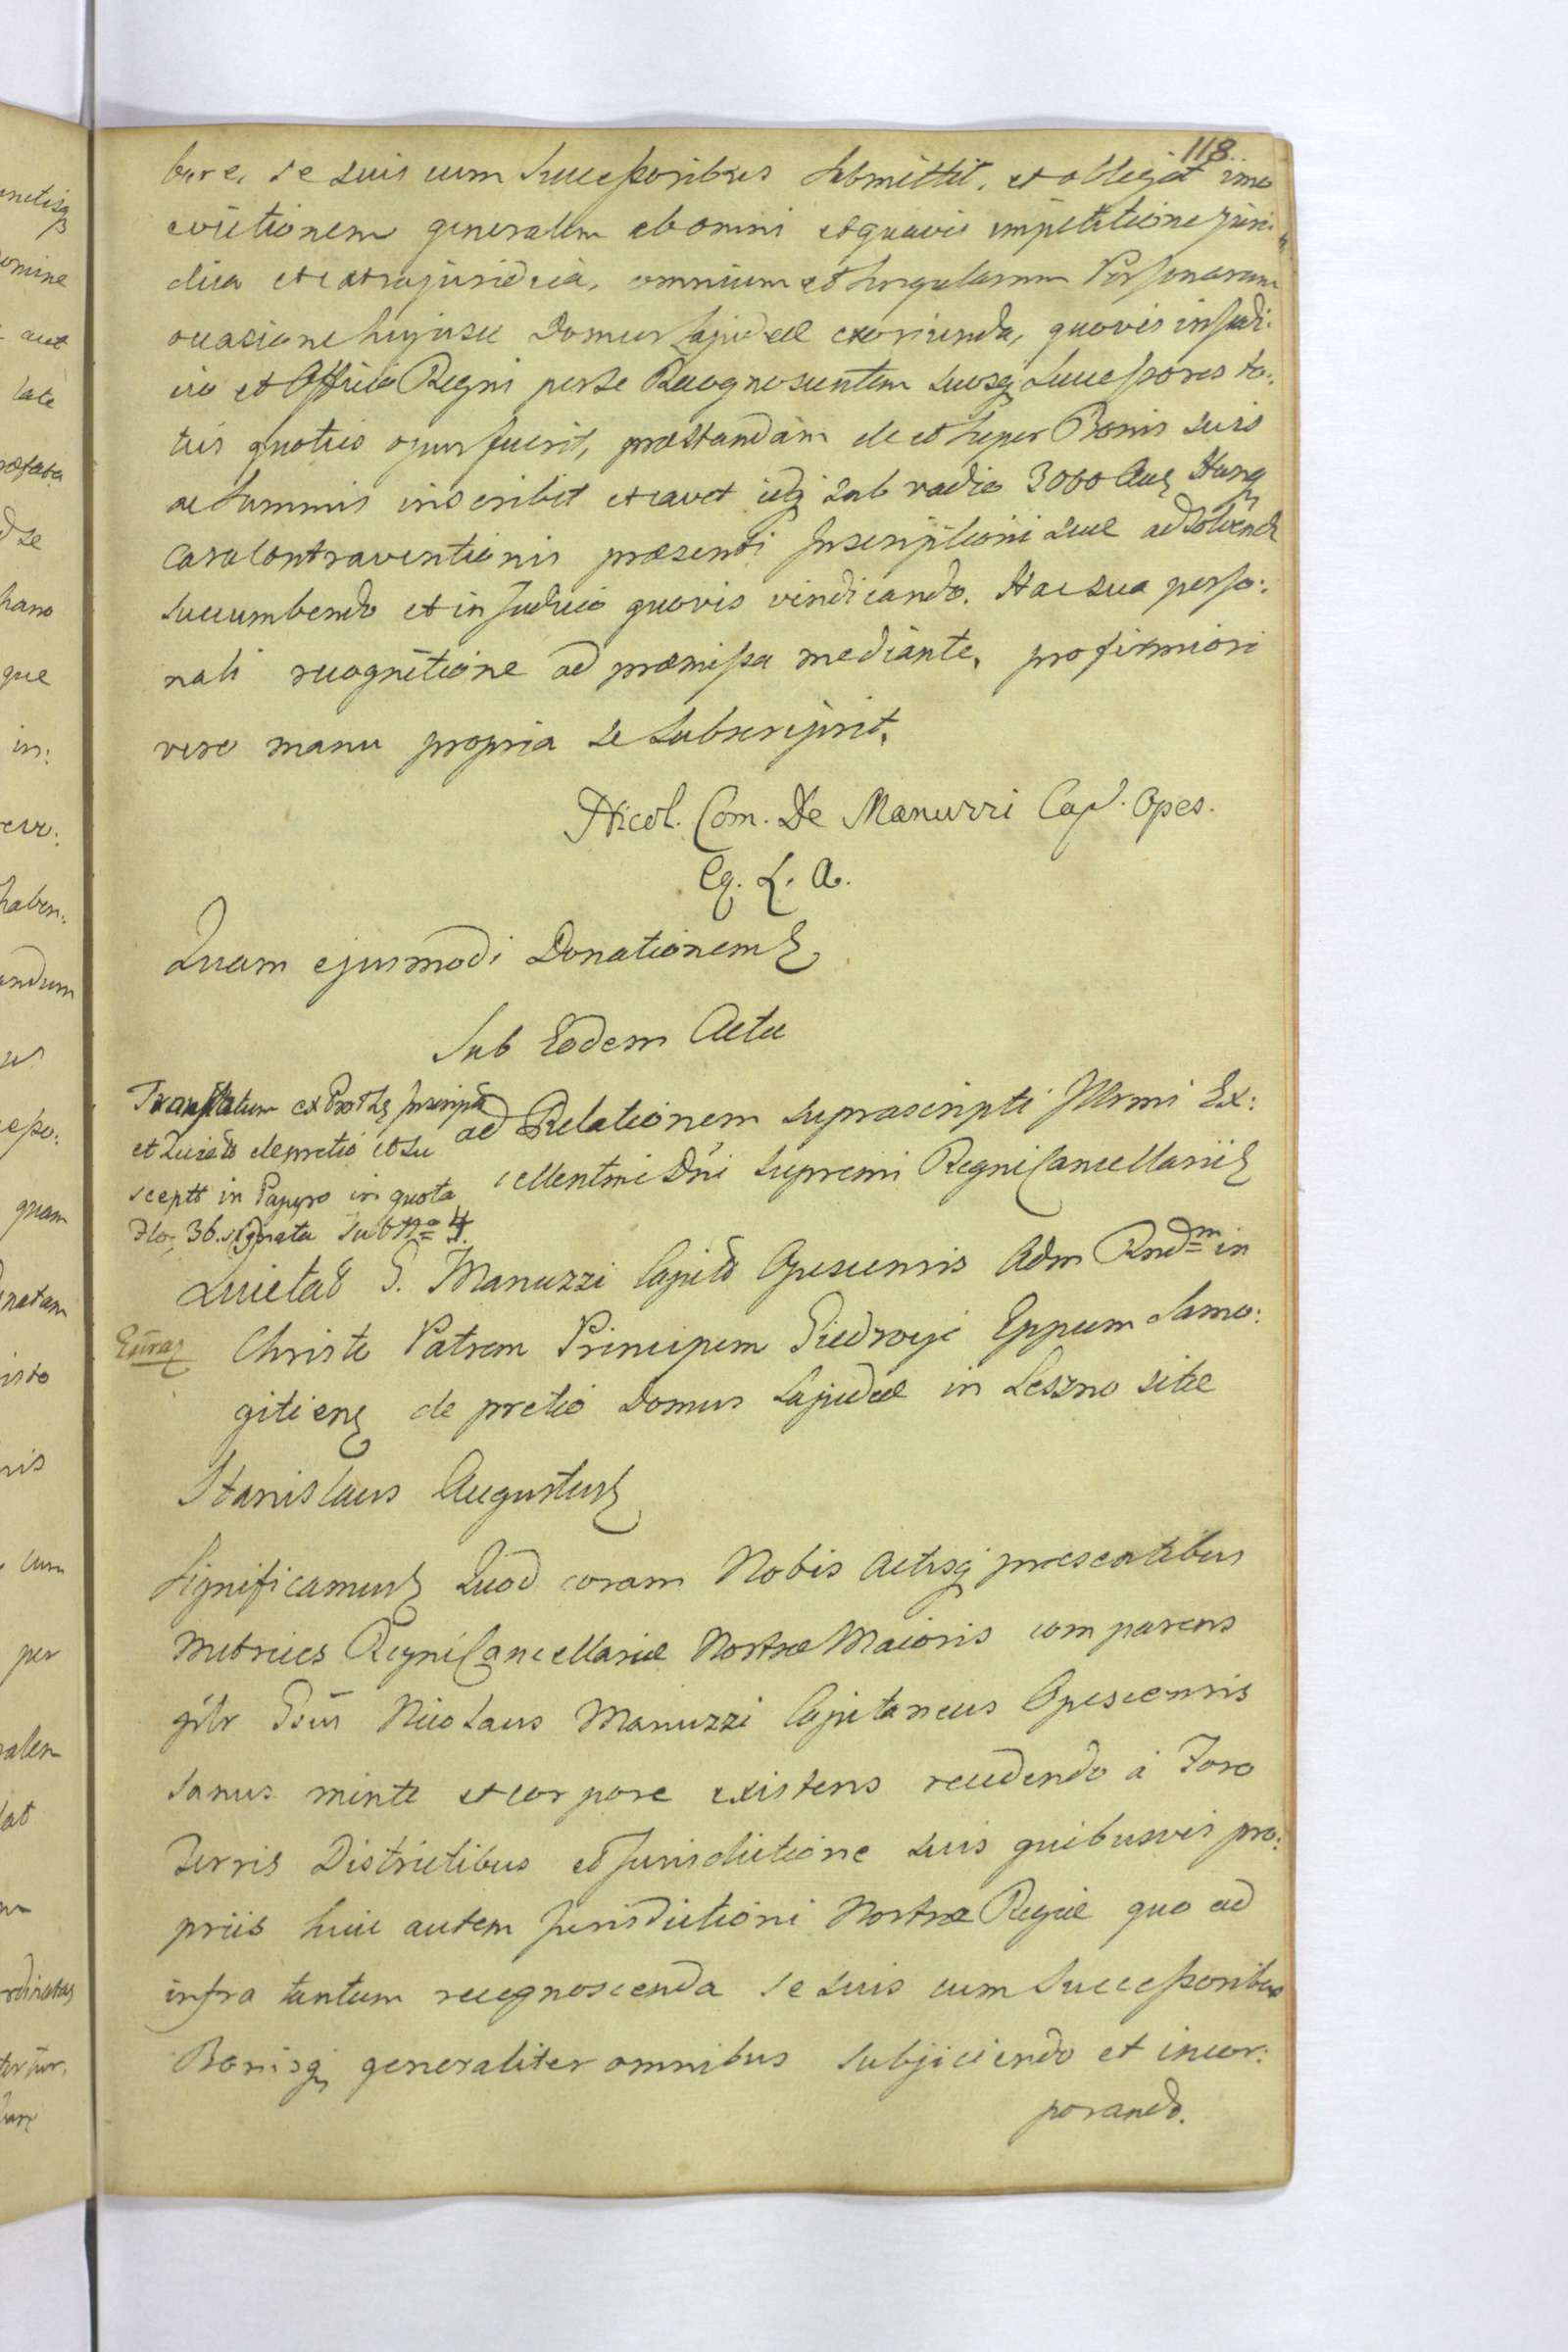 118.
bere, se suis cum Successoribus submittit, et obligat imo
evictionem generalem ab omni et quavis impetitione juri:
dica et extrajuridicia, omnium et singularum Personarum
occasione hujusce Domus Lapideæ exoriunda, quovis in Judi:
cio et Officio Regni per se Recognoscentem suosq Successores to:
ties quoties opus fuerit, præstandam de et super Bonis suis
ac summis inscribit et cavet idq sub vadio 3000 Aur Hung
casu Contraventionis præsenti Inscriptioni suæ ad solvend
succumbendo et in Judicio quovis vindicando. Hac sua perso:
nali recognitione ad præmissa mediante, pro firmiori
vero manu propria se subscripsit.
Nicol. Com. De Manuzzi Cap. Opes.
Eq. L. A.
Quam ejusmodi Donationem
Sub Eodem Actu
Translatum ex Proth Inscript
et Quietõ de pretio et Su
scepto in Papyro in quota
Flo, 36. signata sub Nro 4.
ad Relationem suprascripti Illrmi Ex:
cellentmi Dni Supremi Regni Cancellarii
Quietat G. Manuzzi Capitõ Opescensis Adm Rndm in
Extrad
Christo Patrem Principem Giedroyc Eppum Samo:
gitien de pretio Domus Lapideæ in Leszno sitæ
Stanislaus Augustus
Significamus Quod coram Nobis Actisq præsentibus
Metrices Regni Cancellariæ Nostræ Maioris comparens
pslr Gsus Nicolaus Manuzzi Capitaneus Opescensis
sanus mente et corpore existens recedendo à Foro
Terris Districtibus et Jurisdictione suis quibusvis pro:
priis huic autem Jurisdictioni Nostræ Regiæ quo ad
infra tantum recognoscenda se suis cum Successoribus
Bonisq generaliter omnibus subjiciendo et incor:
porando.